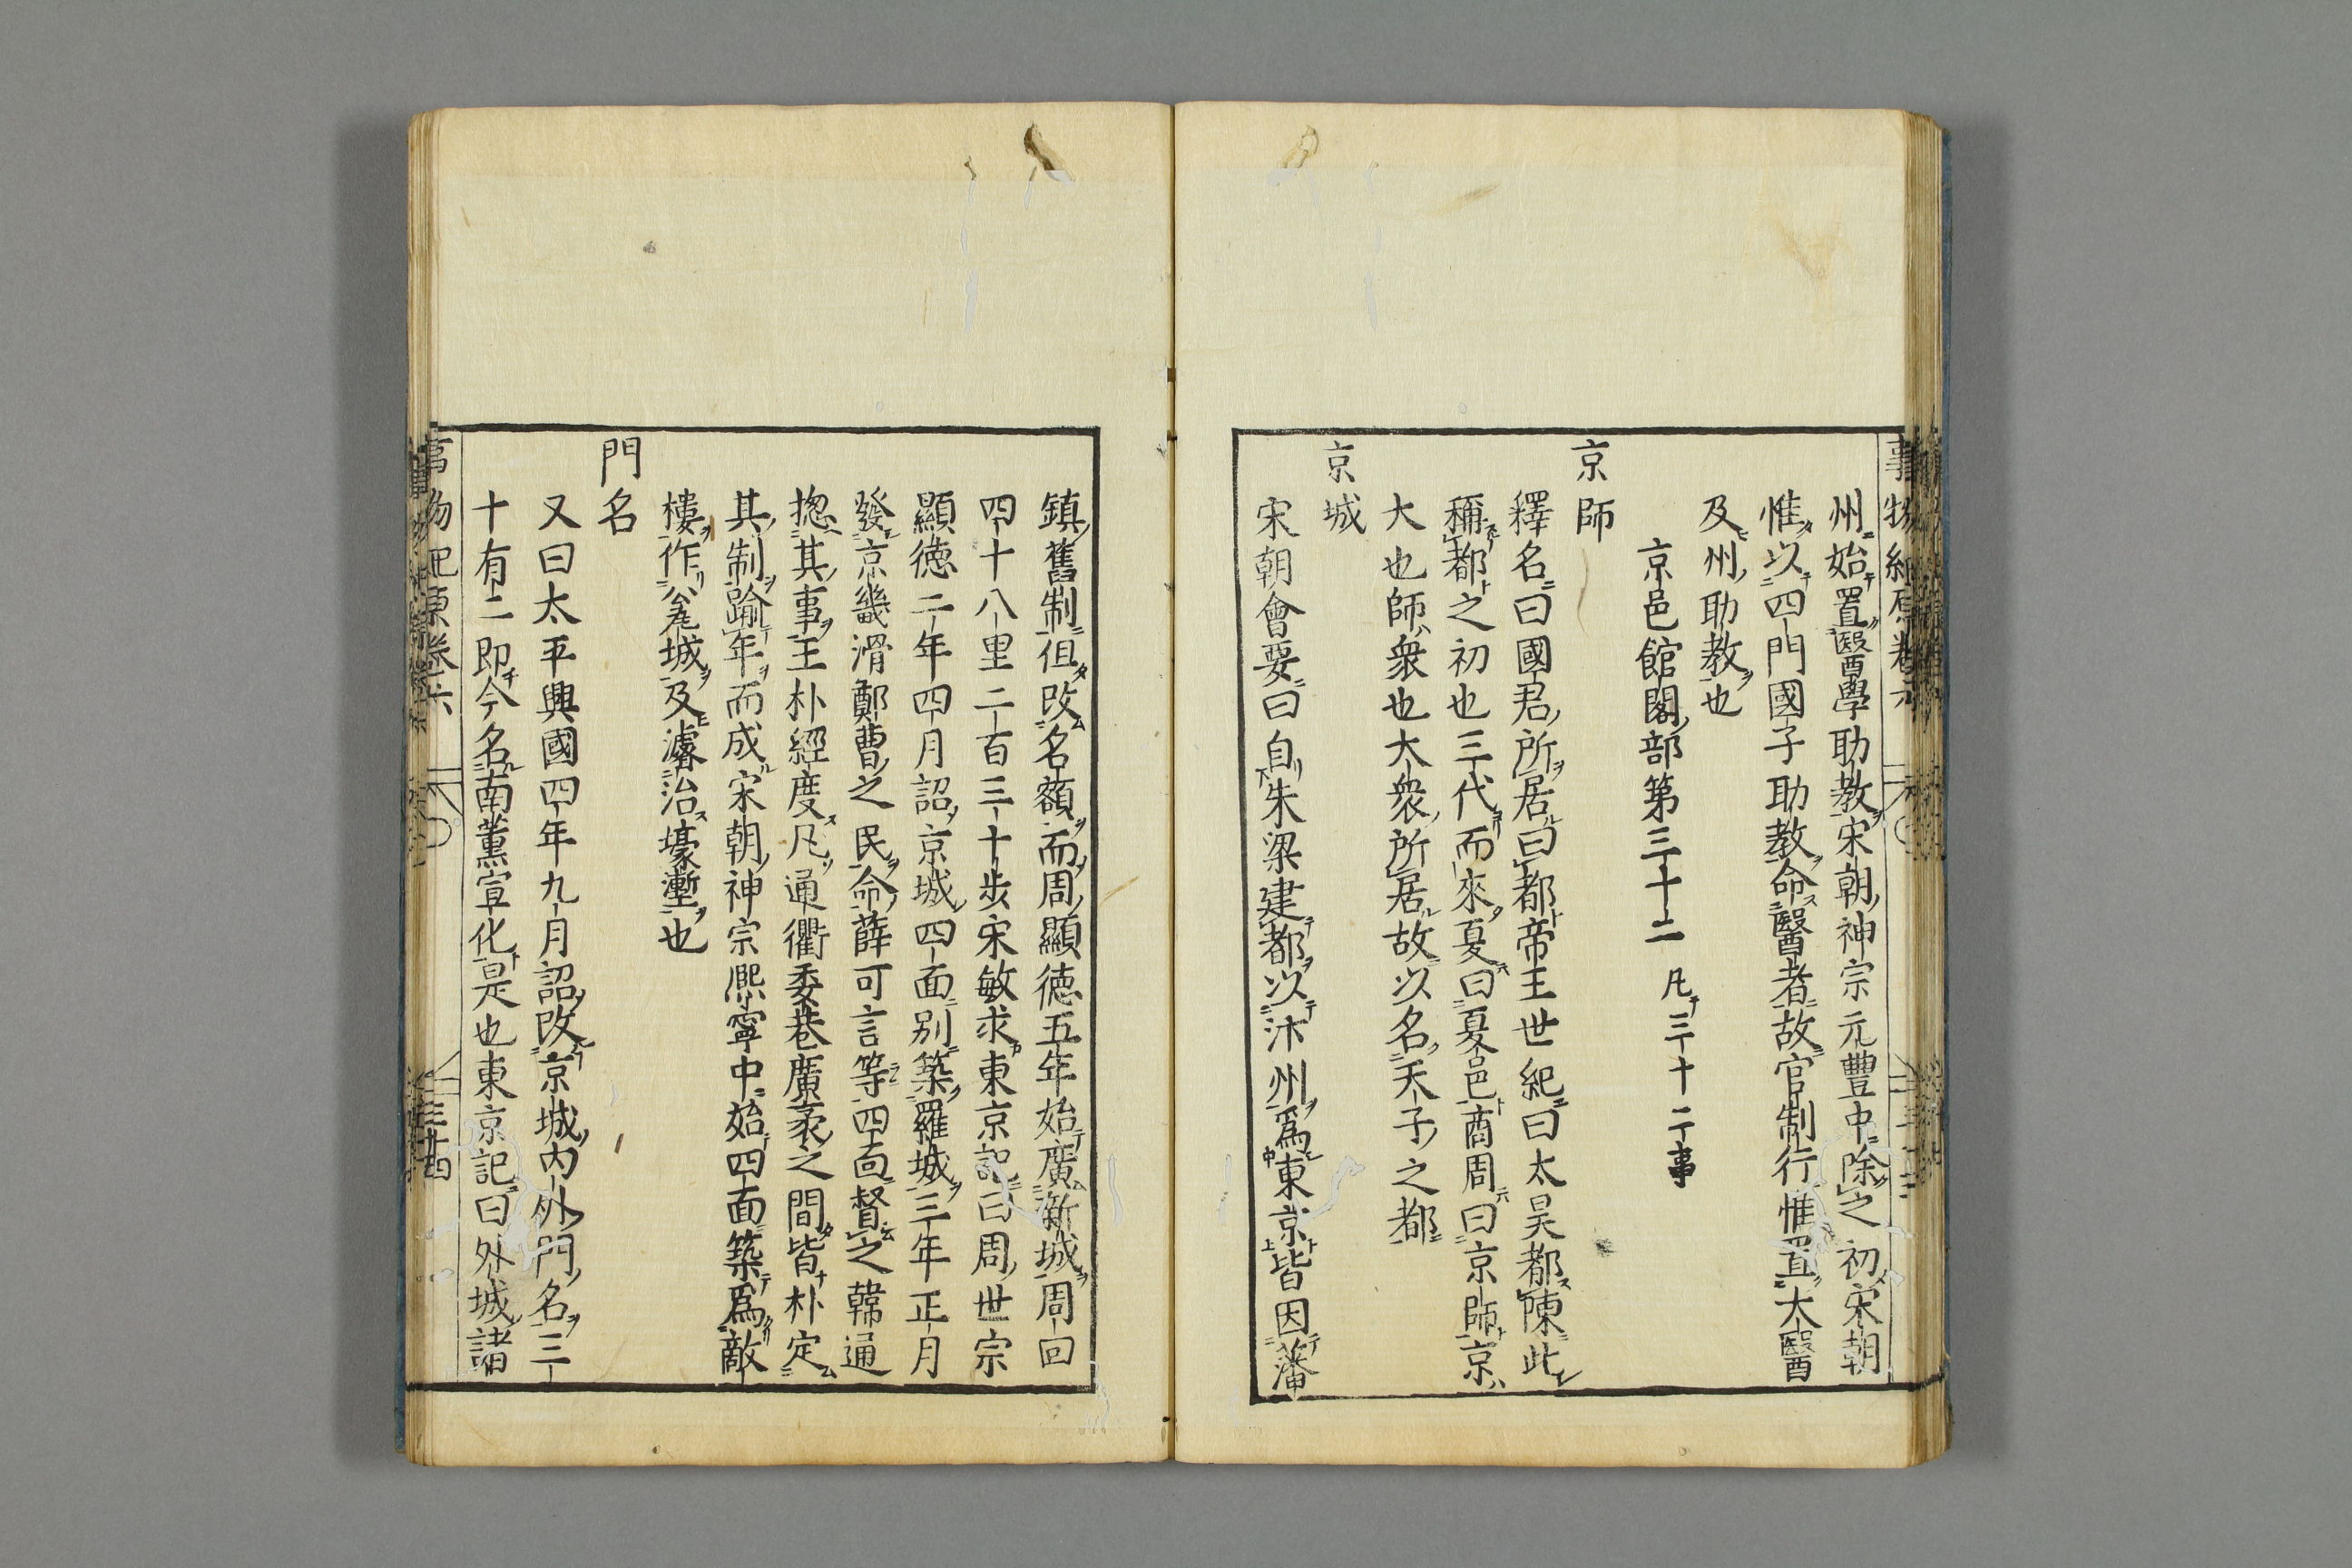 州始置醫學助教宋朝神宗元豐中除之初宋朝
惟以四門國子助教命醫者故官制行惟置太醫
及州助教也
京邑館閣部第三十二 凡三十二事
京師
釋名曰國君所居曰都帝王世紀曰太昊都陳此
稱都之初也三代而來夏曰夏邑商周曰京師京
大也師衆也大衆所居故以名天子之都
京城
宋朝會要曰自朱梁建都以汴州爲東京皆因藩
鎮舊制但改名額而周顯德五年始廣新城周回
四十八里二百三十步宋敏求東京記曰周世宗
顯德二年四月詔京城四面別築羅城三年正月
發京畿滑鄭曹之民命薛可言等四面督之韓通
揔其事王朴經度凡通衢委巷廣袤之間皆朴定
其制踰年而成宋朝神宗熈寧中始四面築爲敵
樓作瓮城及濬治壕塹也
門名
又曰太平興國四年九月詔改京城內外門名三
十有二即今名南薰宣化是也東京記曰外城諸
事物紀原卷六